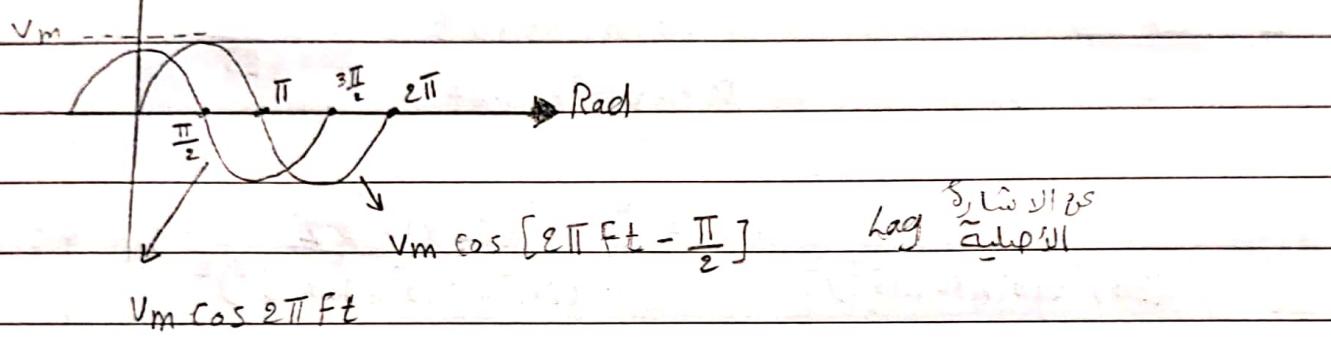 Vm
π/2
π
3π/2
2π
Rad
Vm cos [2π Ft - π/2] Lag عن الاشارة الأصلية
Vm Cos 2π Ft